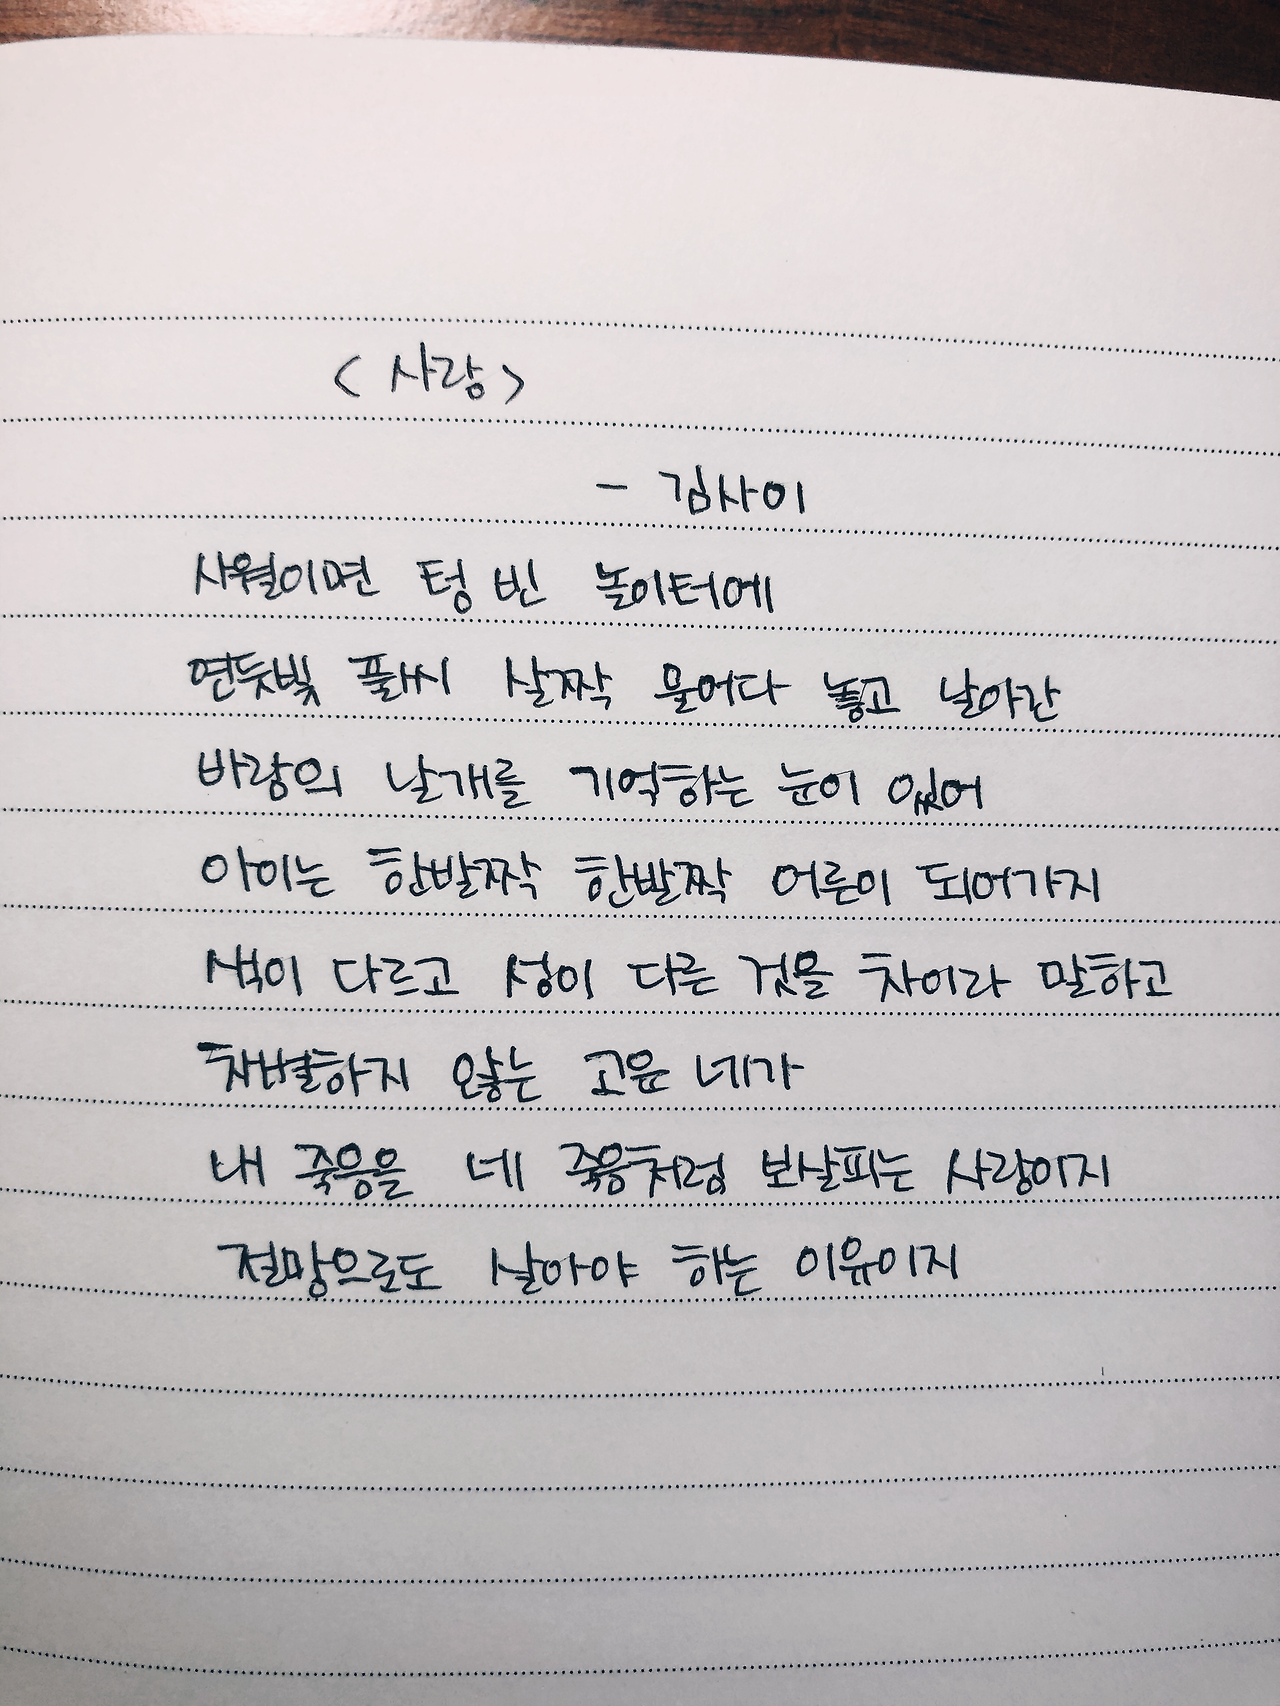 <사랑>
- 김사이
사월이면 텅 빈 놀이터에
연둣빛 풀씨 살짝 물어다 놓고 날아간
바람의 날개를 기억하는 눈이 있어
아이는 한발짝 한발짝 어른이 되어가지
색이 다르고 성이 다른 것을 차이라 말하고
차별하지 않는 고운 네가
내 죽음을 네 죽음처럼 보살피는 사랑이지
절망으로도 살아야 하는 이유이지